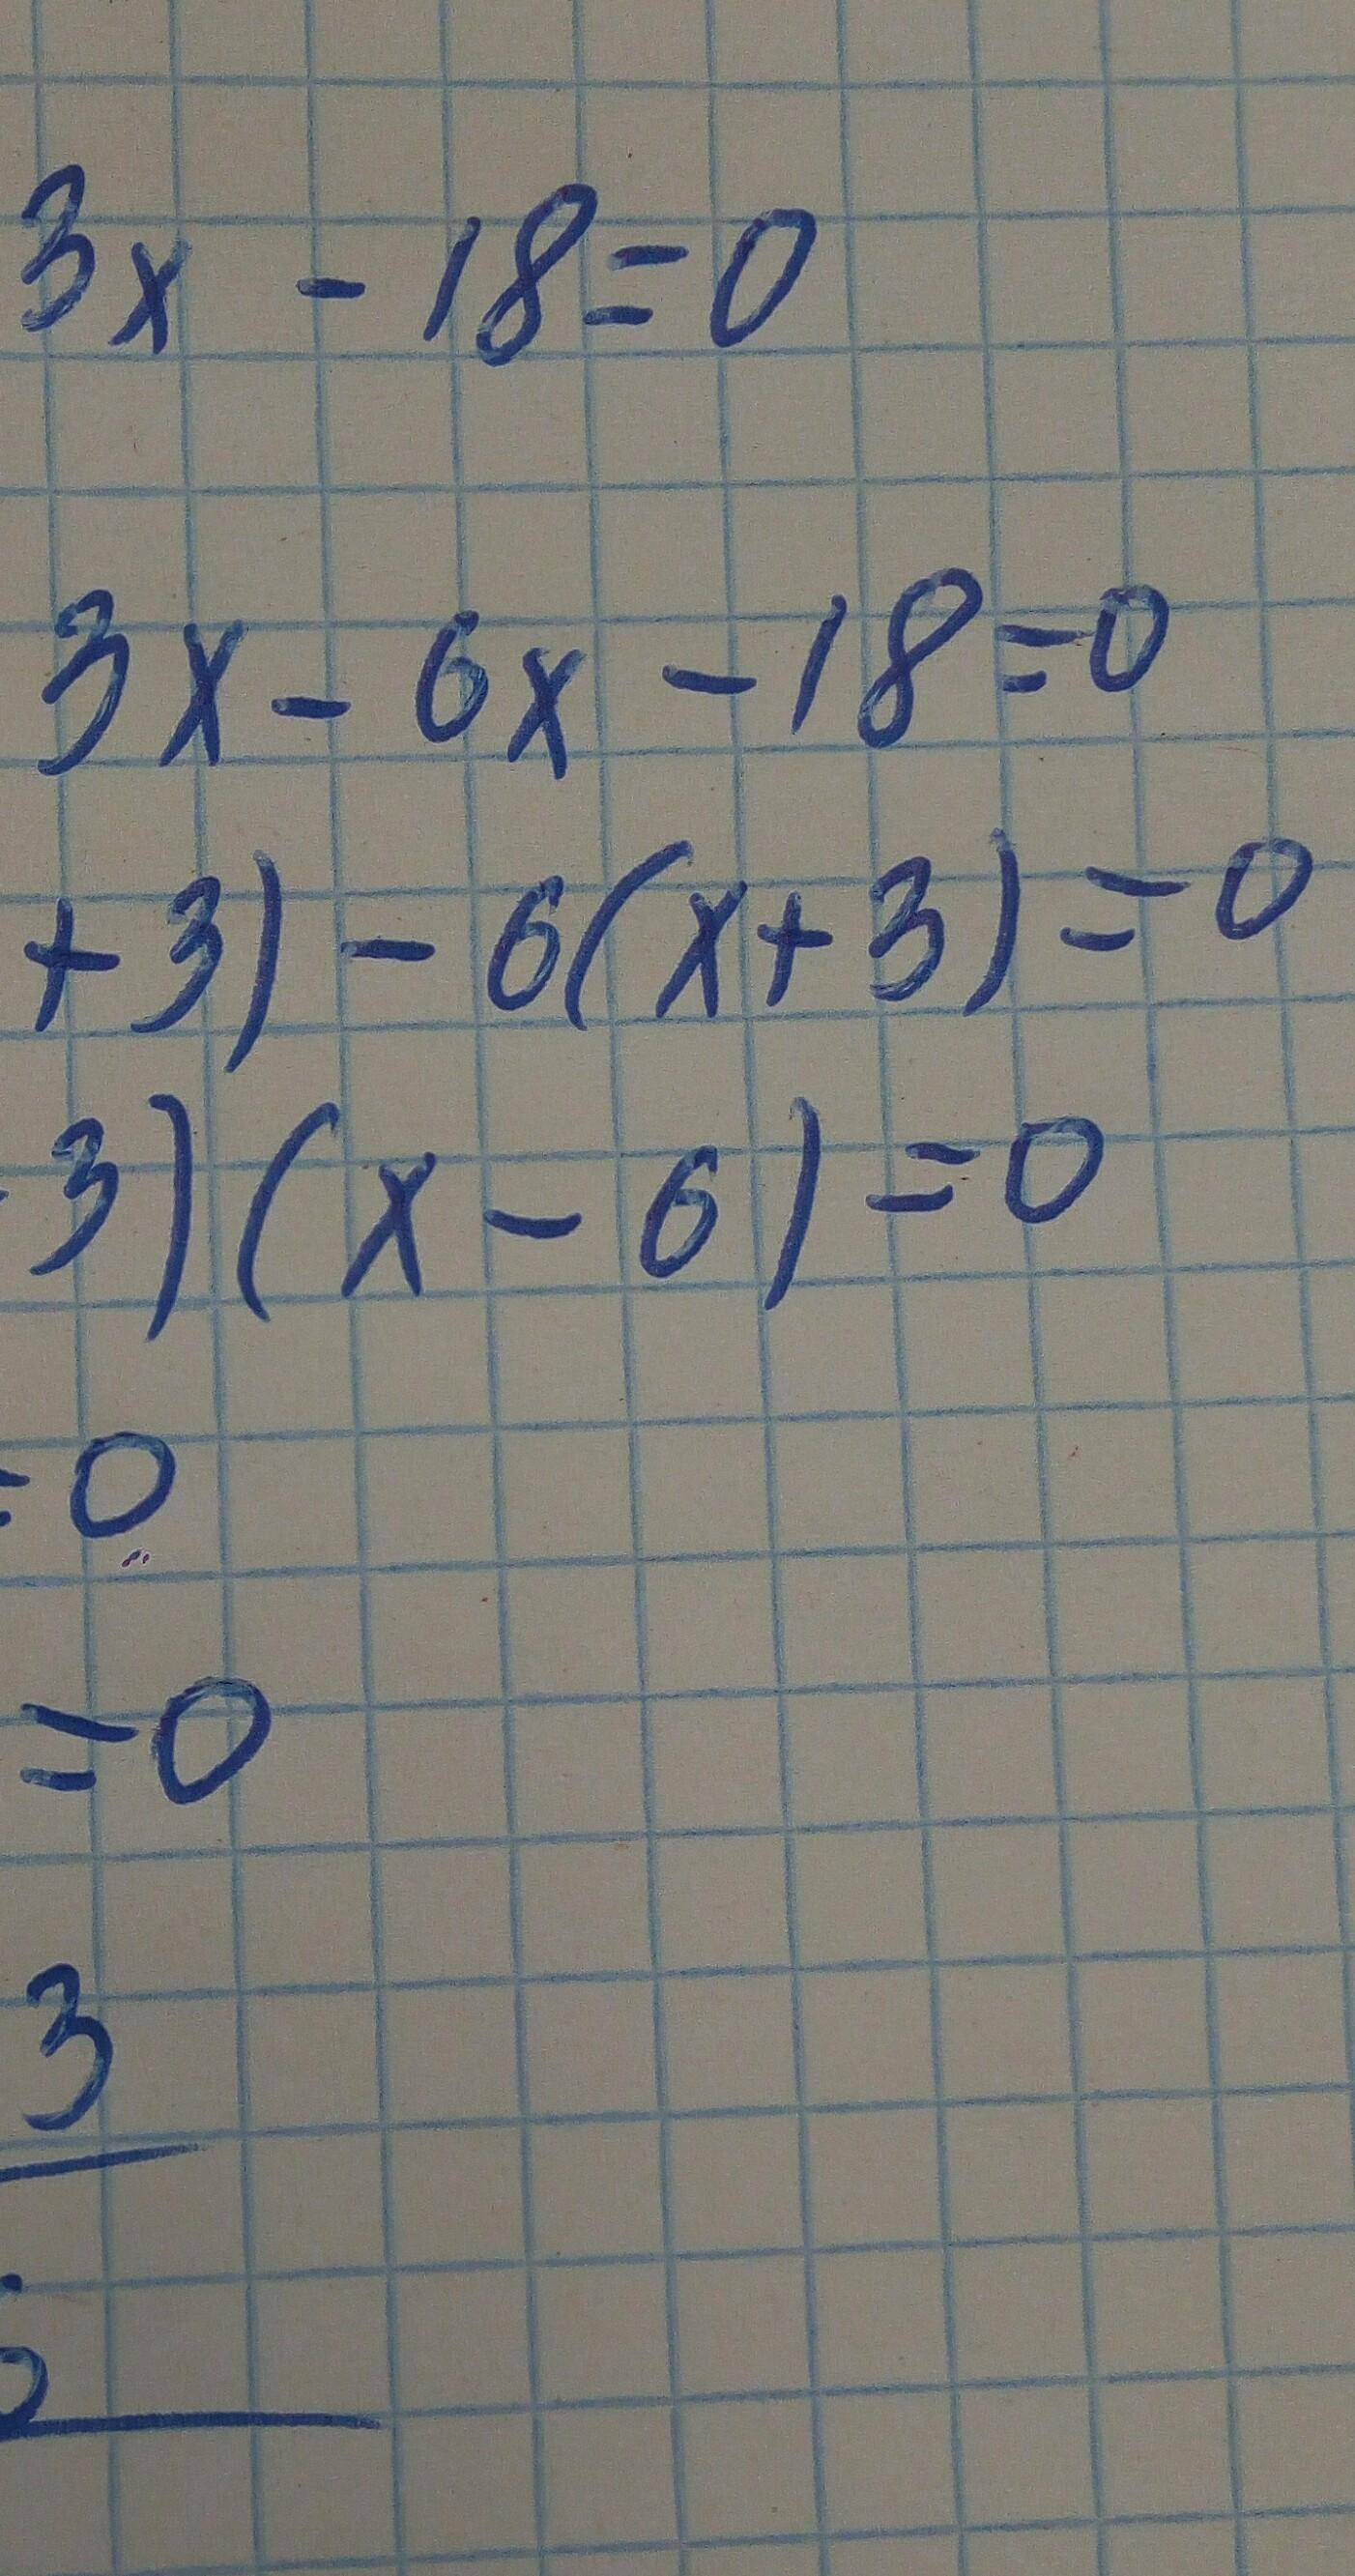 3x - 18=0
3x - 6x - 18=0
+3) - 6(x+3)=0
3)(x-6)=0
=0
=0
3